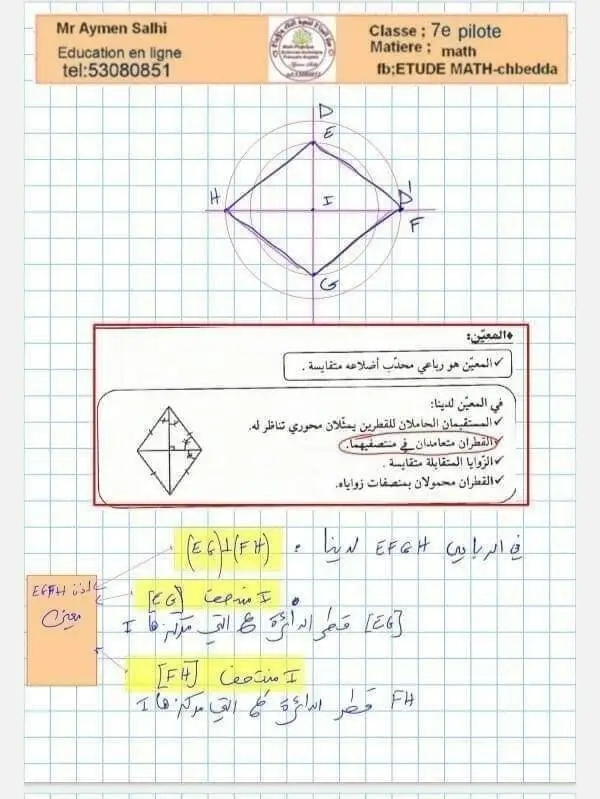 Mr Aymen Salhi
Education en ligne
tel:53080851
Classe ; 7e pilote
Matiere ; math
fb;ETUDE MATH-chbedda
D
E
H
I
D'
F
G
♦المعيّن:
✓المعيّن هو رباعي محدّب أضلاعه متقايسة .
في المعيّن لدينا:
✓المستقيمان الحاملان للقطرين يمثّلان محوري تناظر له.
✓القطران متعامدان في منتصفيهما.
✓الزّوايا المتقابلة متقايسة .
✓القطران محمولان بمنصفات زواياه.
في الرباعي EFGH لدينا : (EG)⊥(FH)
I منتصف [EG]
[EG] قطر الدائرة التي مركزها I
I منتصف [FH]
FH قطر الدائرة التي مركزها I
إذن
معين